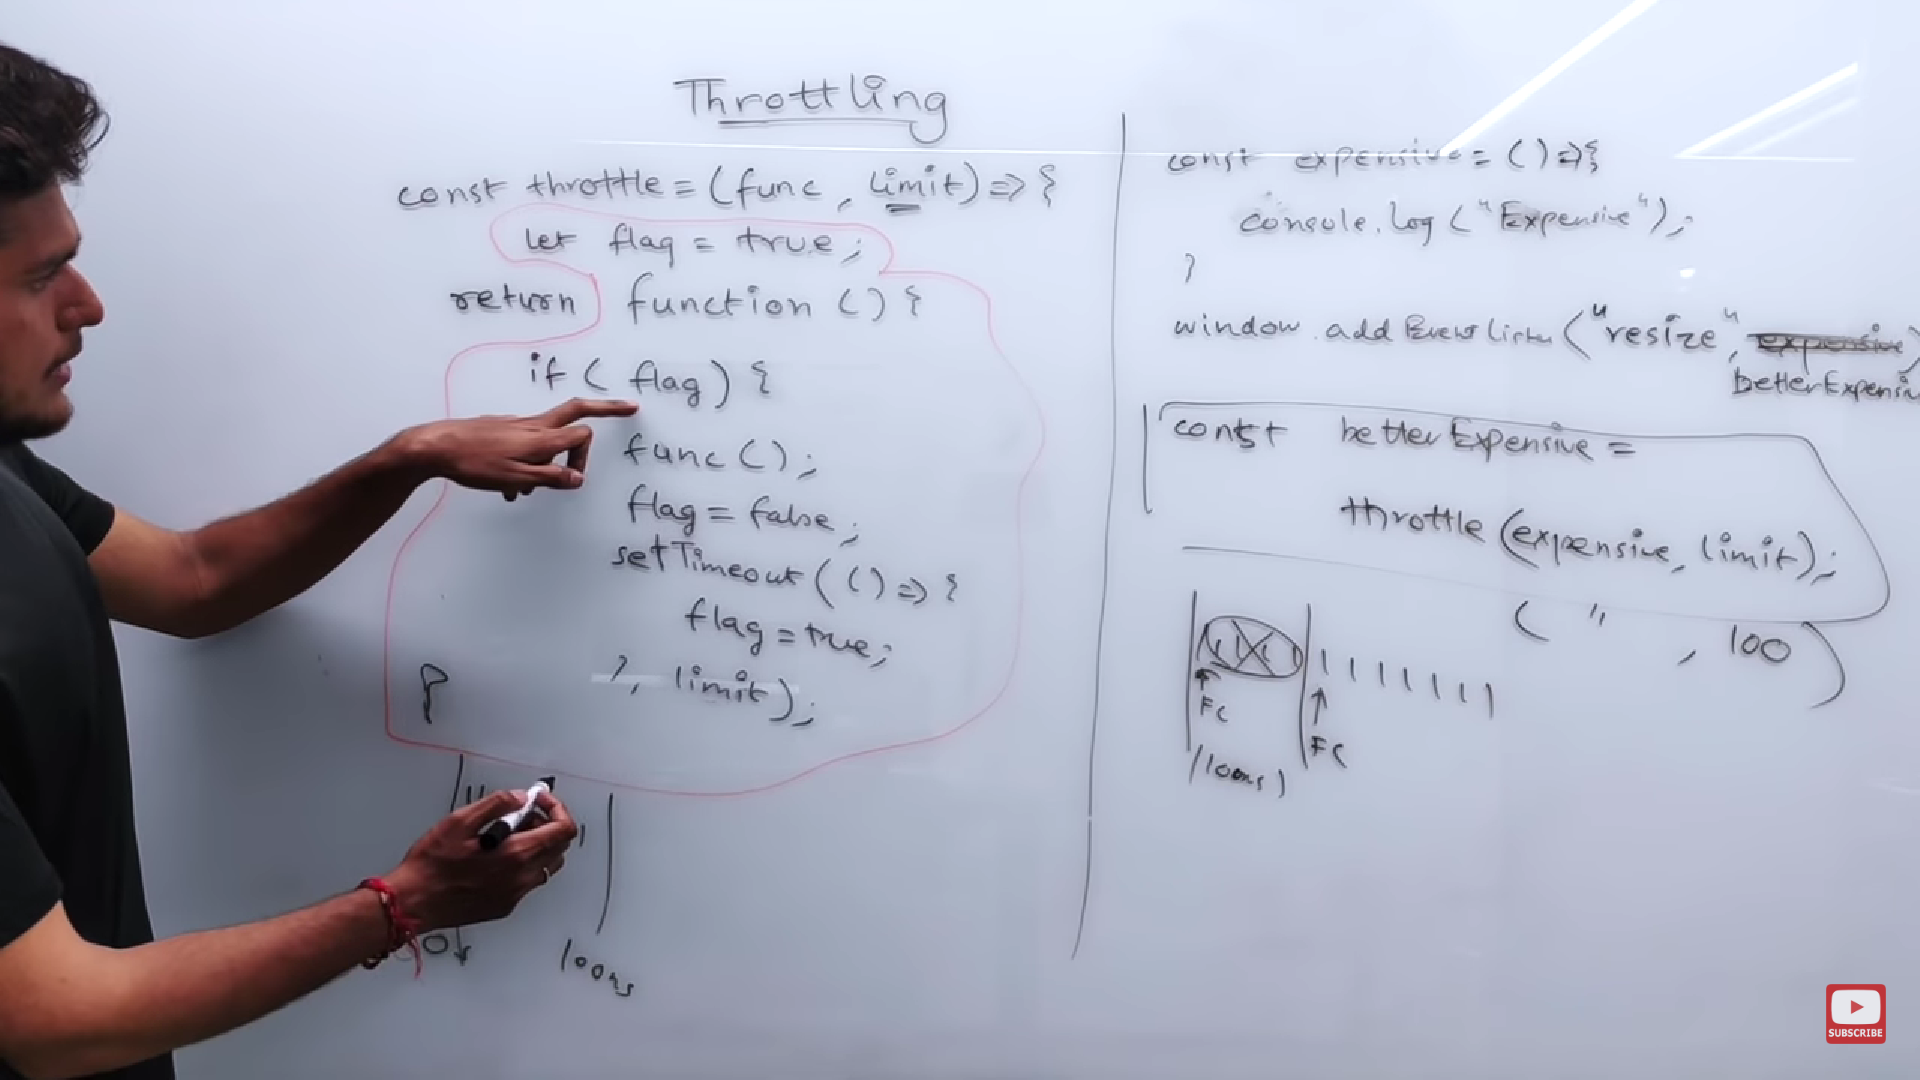 Throttling
const throttle = (func, limit) => {
let flag = true;
return function () {
if (flag) {
func ();
flag = false;
setTimeout (() => {
flag = true;
}, limit);
}
0
100ms
const expensive = () => {
console.log ("Expensive");
}
window.addEventListner ("resize", expensive)
betterExpensive
const betterExpensive =
throttle (expensive, limit);
( " , 100 )
FC
FC
(100ms)
SUBSCRIBE